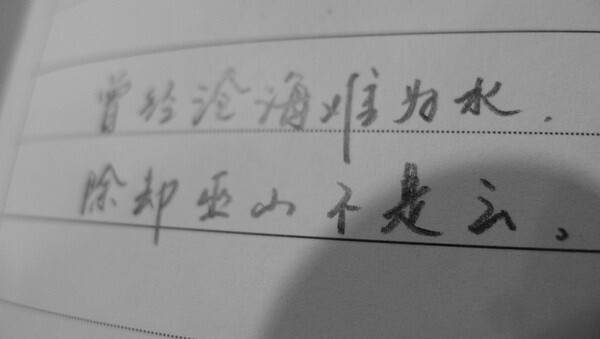 曾经沧海难为水.
除却巫山不是云。